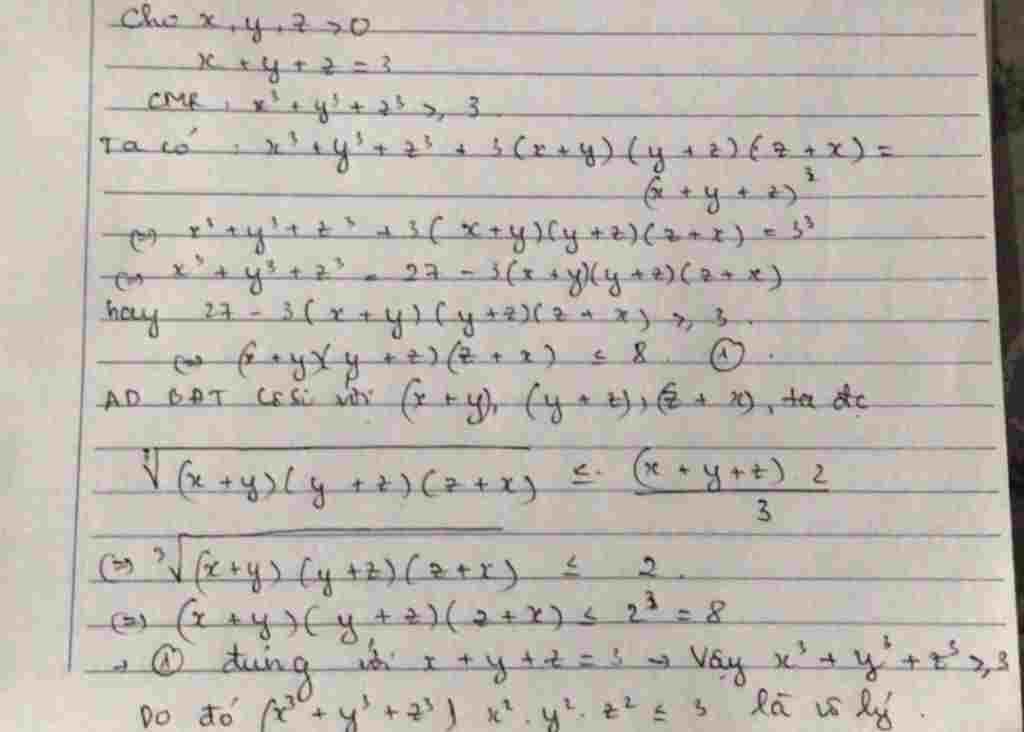 Cho x, y, z > 0
x + y + z = 3
CMR : x³ + y³ + z³ ≥ 3
Ta có : x³ + y³ + z³ + 3(x+y)(y+z)(z+x) =
(x + y + z)³
(=) x³ + y³ + z³ + 3(x+y)(y+z)(z+x) = 3³
(=) x³ + y³ + z³ = 27 - 3(x+y)(y+z)(z+x)
hay 27 - 3(x+y)(y+z)(z+x) ≥ 3.
(=) (x+y)(y+z)(z+x) ≤ 8 ①.
AD BĐT Cesi với (x+y), (y+z), (z+x), ta đc
∛(x+y)(y+z)(z+x) ≤ (x+y+z) 2 / 3
(=) ∛(x+y)(y+z)(z+x) ≤ 2.
(=) (x+y)(y+z)(z+x) ≤ 2³ = 8
→ ① đúng với x + y + z = 3 → Vậy x³ + y³ + z³ ≥ 3
Do đó (x³ + y³ + z³) x² . y² . z² ≤ 3 là vô lý.